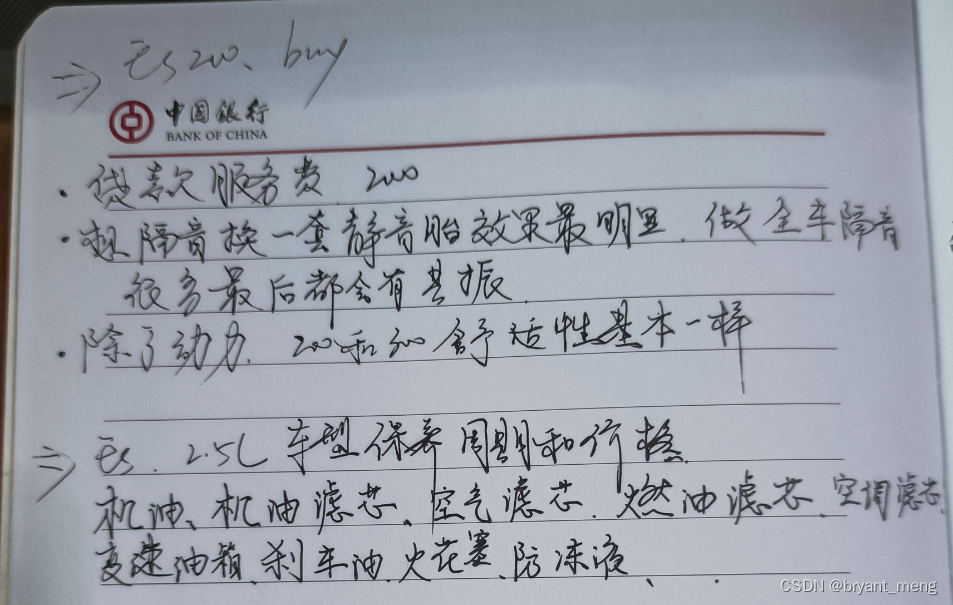 ⇒ Es 200、buy
中国银行
BANK OF CHINA
· 贷款服务费 200
· 想隔音换一套静音胎效果最明显.做全车隔音
很多最后都会有共振.
· 除了动力.200和300舒适性基本一样
⇒ Es.2.5L车型保养周期和价格
机油、机油滤芯、空气滤芯.燃油滤芯.空调滤芯.
变速油箱.刹车油.火花塞.防冻液、.
CSDN @bryant_meng